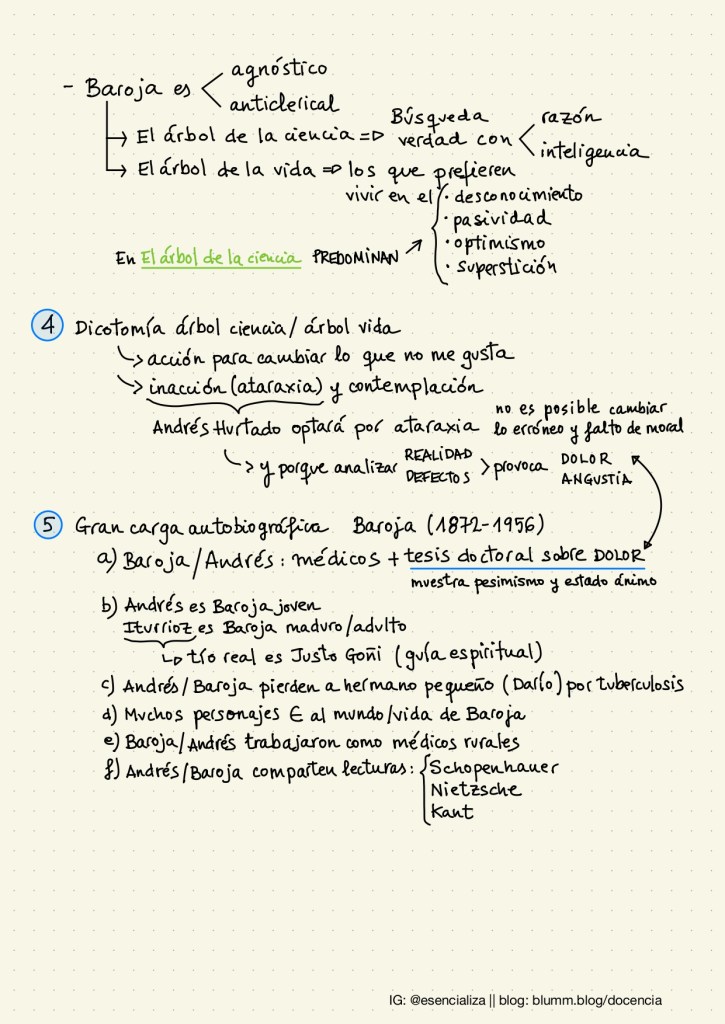 - Baroja es < agnóstico
anticlerical
→ El árbol de la ciencia => Búsqueda verdad con < razón
inteligencia
→ El árbol de la vida => los que prefieren
vivir en el { · desconocimiento
· pasividad
· optimismo
· superstición
En El árbol de la ciencia PREDOMINAN ↗
④ Dicotomía árbol ciencia / árbol vida
↳ acción para cambiar lo que no me gusta
↳ inacción (ataraxia) y contemplación
Andrés Hurtado optará por ataraxia no es posible cambiar
lo erróneo y falto de moral
↳ y porque analizar REALIDAD DEFECTOS > provoca DOLOR ANGUSTIA
⑤ Gran carga autobiográfica Baroja (1872-1956)
a) Baroja / Andrés : médicos + tesis doctoral sobre DOLOR
muestra pesimismo y estado ánimo
b) Andrés es Baroja joven
Iturrioz es Baroja maduro/adulto
↳ tío real es Justo Goñi (guía espiritual)
c) Andrés / Baroja pierden a hermano pequeño (Darío) por tuberculosis
d) Muchos personajes ∈ al mundo/vida de Baroja
e) Baroja/Andrés trabajaron como médicos rurales
f) Andrés/Baroja comparten lecturas: { Schopenhauer
Nietzsche
Kant
IG: @esencializa || blog: blumm.blog/docencia